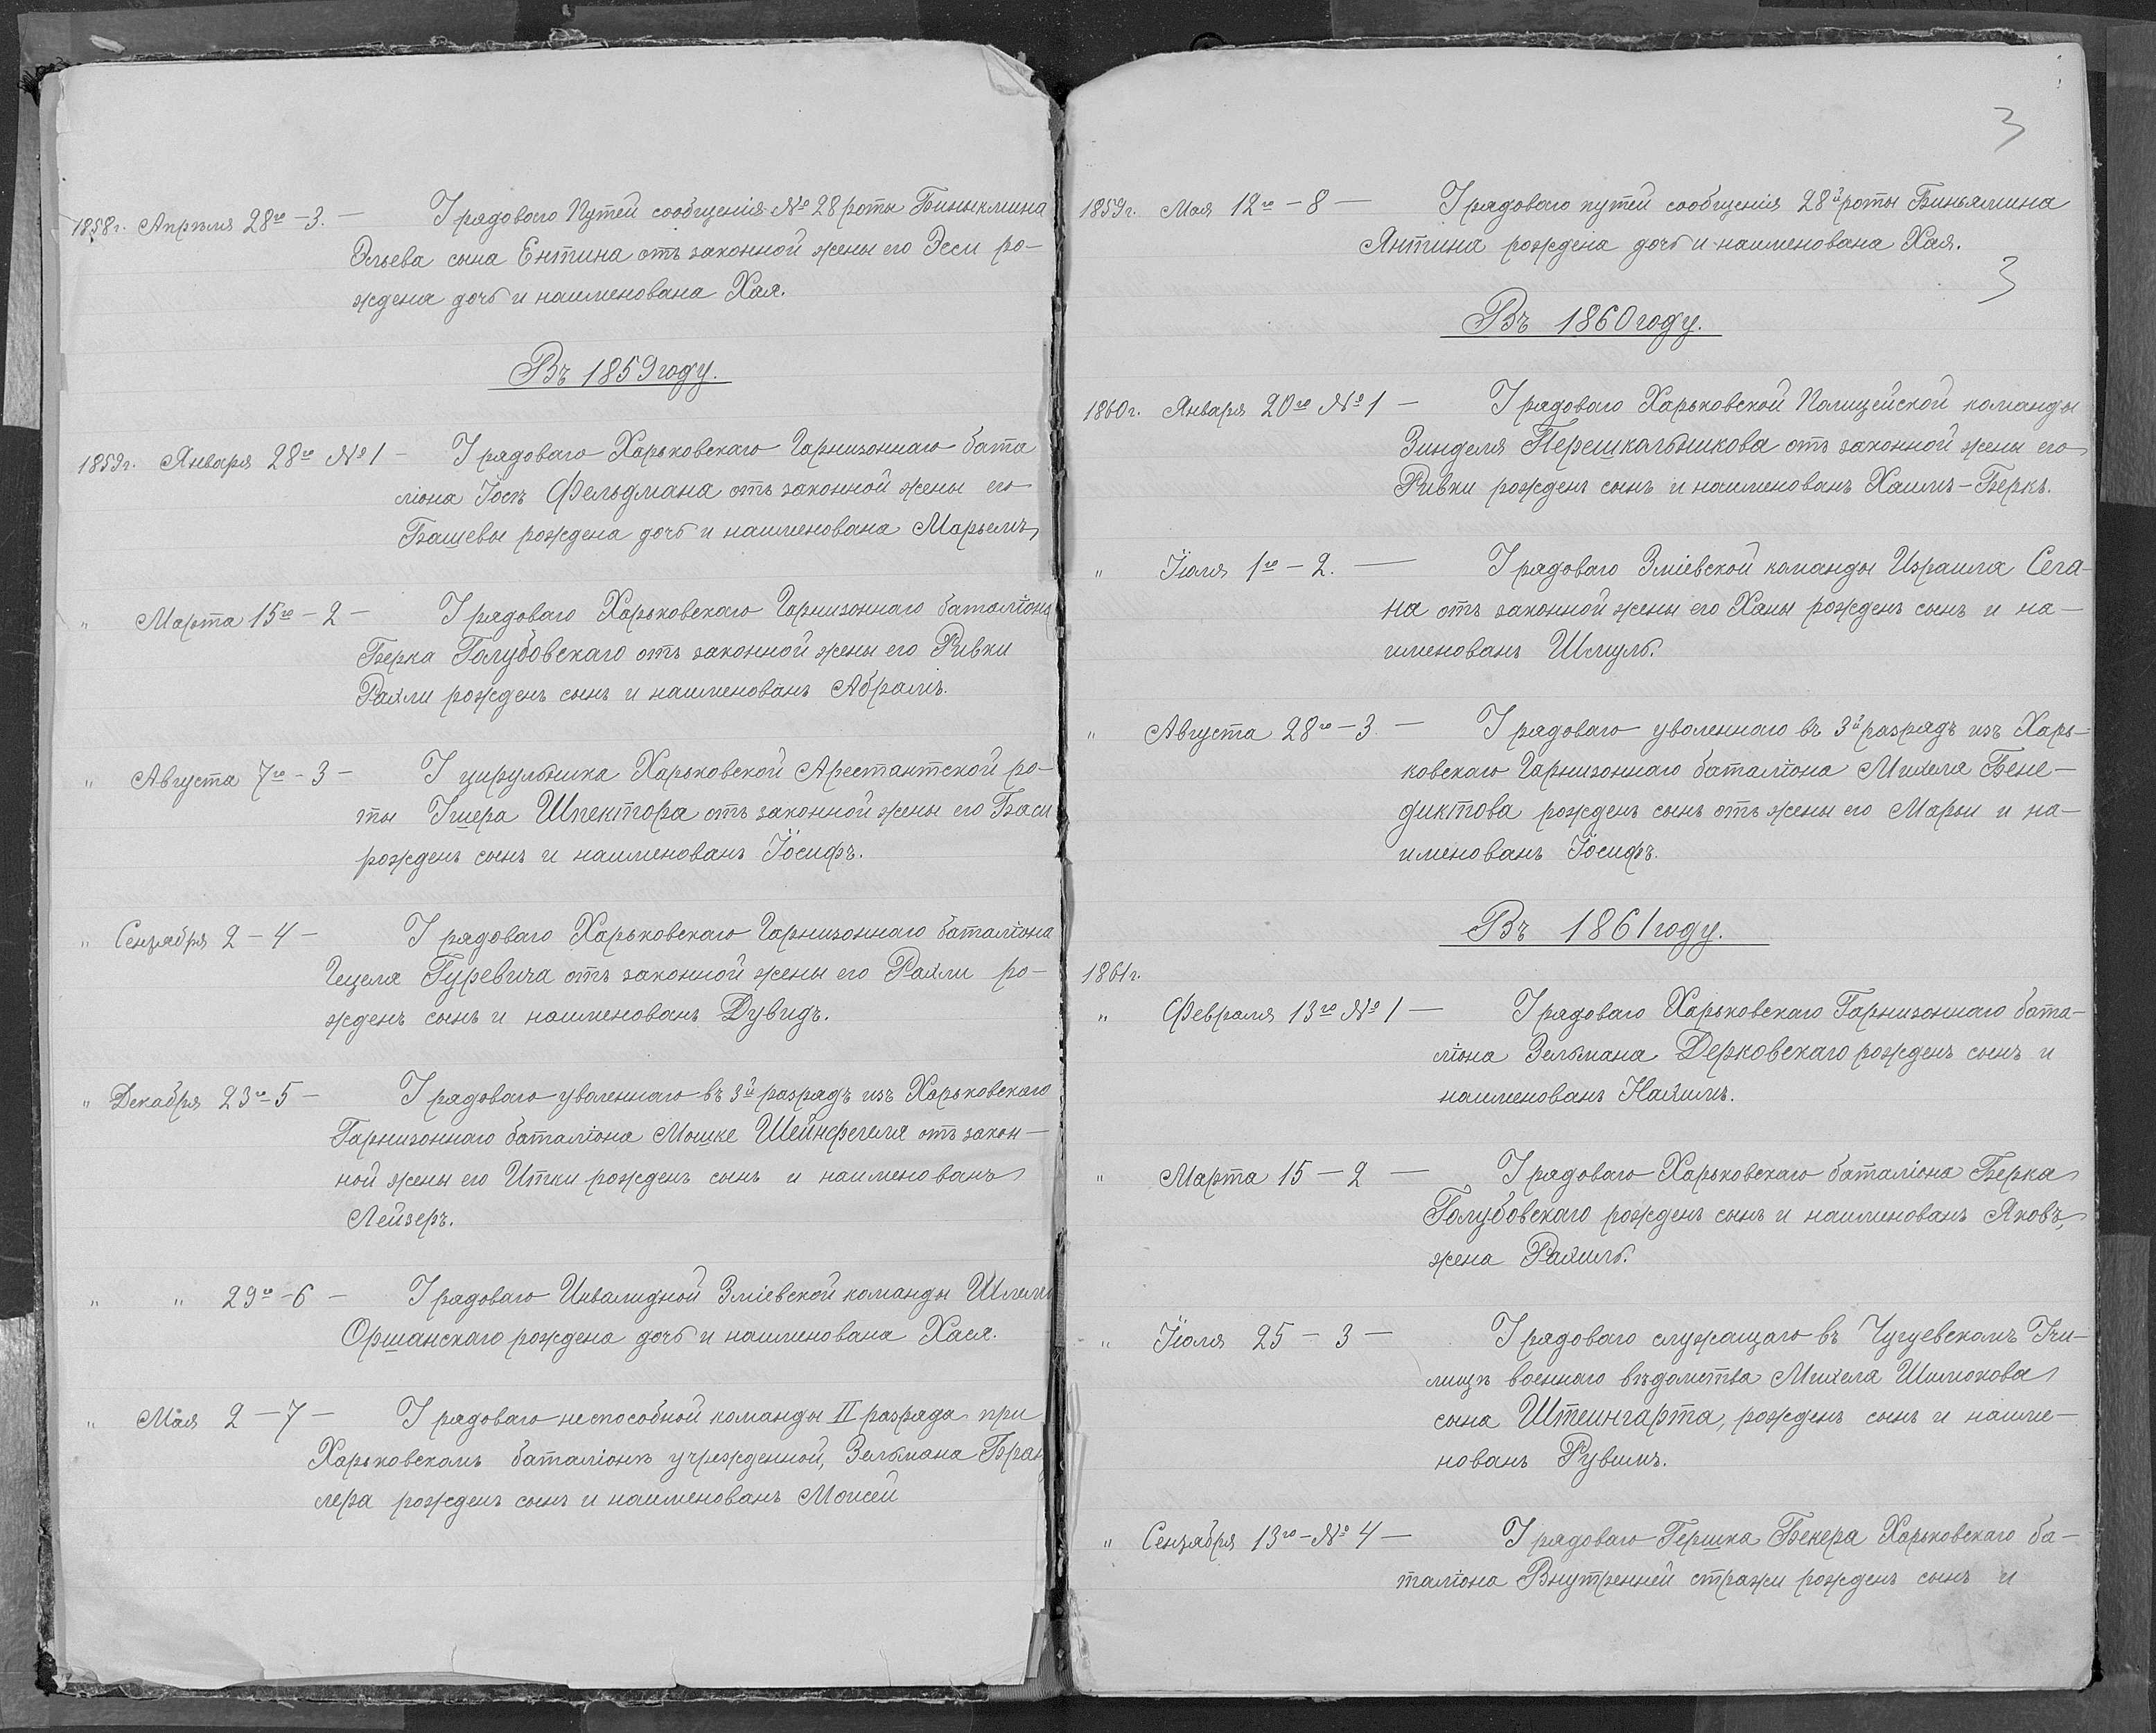 1858г. Апрѣля 28го – 3. – У рядоваго Путей сообщенія № 28 роты Биньямина
Эльева сына Ентина отъ законной жены его Эсси ро-
ждена дочь и наименована Хая.
Въ 1859 году.
1859г. Января 28го № 1 – У рядоваго Харьковскаго Гарнизоннаго бата
ліона Іосъ Фельдмана отъ законной жены его
Башевы рождена дочь и наименована Марьемъ,
" Марта 15го – 2 – У рядоваго Харьковскаго Гарнизоннаго баталіона
Берка Голубовскаго отъ законной жены его Ривки
Рахли рожденъ сынъ и наименованъ Абрамъ.
" Августа 7го – 3 – У цирульника Харьковской Арестантской ро-
ты Ушера Шпектора отъ законной жены его Баси
рожденъ сынъ и наименованъ Іосифъ.
" Сентября 2 – 4 – У рядоваго Харьковскаго Гарнизоннаго баталіона
Гецеля Гуревича отъ законной жены его Рахли ро-
жденъ сынъ и наименованъ Дувидъ.
" Декабря 23го – 5 – У рядоваго уволеннаго въ 3й разрядъ изъ Харьковскаго
Гарнизоннаго баталіона Мошке Шейнфегеля отъ закон-
ной жены его Итки рожденъ сынъ и наименованъ
Лейзеръ.
" " 29го – 6 – У рядоваго Инвалидной Зміевской команды Шлемы
Оршанскаго рождена дочь и наименована Хася.
" Мая 2 – 7 – У рядоваго неспособной команды II разряда при
Харьковскомъ баталіонѣ учрежденной, Зельмана Бранд
лера рожденъ сынъ и наименованъ Моисей
3
1859г. Мая 12го – 8 – У рядоваго путей сообщенія 28й роты Биньямина
Янтина рождена дочь и наименована Хая.
3
Въ 1860 году.
1860г. Января 20го № 1 – У рядоваго Харьковской Полицейской команды
Зинделя Перешкольникова отъ законной жены его
Ривки рожденъ сынъ и наименованъ Хаимъ-Беркъ.
" Іюля 1го – 2. – У рядоваго Зміевской команды Израиля Сега-
на отъ законной жены его Ханы рожденъ сынъ и на-
именованъ Шмуль.
" Августа 28го – 3. – У рядоваго уволеннаго въ 3й разрядъ изъ Харь-
ковскаго Гарнизоннаго баталіона Михеля Бене-
диктова рожденъ сынъ отъ жены его Марьи и на-
именованъ Іосифъ.
Въ 1861 году.
1861г.
" Февраля 13го № 1 – У рядоваго Харьковскаго Гарнизоннаго бата-
ліона Зельмана Дерковскаго рожденъ сынъ и
наименованъ Нахимъ.
" Марта 15 – 2 – У рядоваго Харьковскаго баталіона Берка
Голубовскаго рожденъ сынъ и наименованъ Яковъ,
жена Рахиль.
" Іюля 25 – 3 – У рядоваго служащаго въ Чугуевскомъ Учи-
лищѣ военнаго вѣдомства Михеля Шимонова
сына Штеингарта, рожденъ сынъ и наиме-
нованъ Рувимъ.
" Сентября 13го – № 4 – У рядоваго Гершка Бекера Харьковскаго ба-
таліона Внутренней стражи рожденъ сынъ и